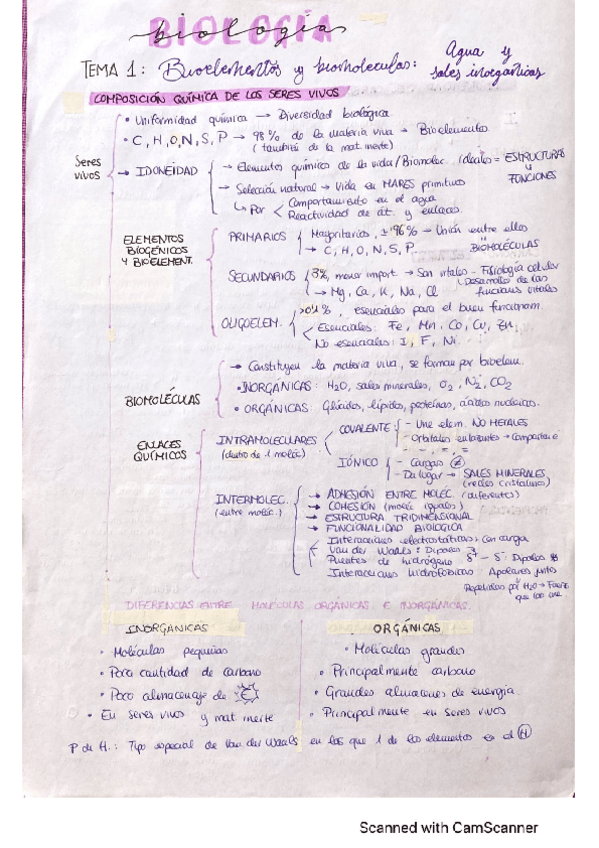 BIOLOGÍA
biología
TEMA 1: Bioelementos y biomoleculas: Agua y
sales inorgánicas
COMPOSICIÓN QUÍMICA DE LOS SERES VIVOS
Seres vivos
• Uniformidad química → Diversidad biológica
• C, H, O, N, S, P → 98% de la materia viva → Bioelementos
(también de la mat. inerte)
→ IDONEIDAD
→ Elementos químicos de la vida/Biomoléc. ideales = ESTRUCTURAS
y
FUNCIONES
→ Selección natural → Vida en MARES primitivos
↳ Por < Comportamiento en el agua
Reactividad de át. y enlaces.
ELEMENTOS
BIOGÉNICOS
Y BIOELEMENT.
PRIMARIOS
Mayoritarios, ± 96% → Unión entre ellos
=
BIOMOLÉCULAS
→ C, H, O, N, S, P
SECUNDARIOS
3%, menor import. → Son vitales - Fisiología celular
- Desarrollo de las
funciones vitales
→ Mg, Ca, K, Na, Cl
OLIGOELEM.
0,1%, esenciales para el buen funcionam.
Esenciales: Fe, Mn, Co, Cu, Zn
No esenciales: I, F, Ni
BIOMOLÉCULAS
→ Constituyen la materia viva, se forman por bioelem.
• INORGÁNICAS: H2O, sales minerales, O2, N2, CO2
• ORGÁNICAS: Glúcidos, lípidos, proteínas, ácidos nucleicos.
ENLACES
QUÍMICOS
INTRAMOLECULARES
(dentro de 1 moléc)
COVALENTE
- Une elem. NO METALES
- Orbitales enlazantes → Comparten e
- , = , ≡
IÓNICO
- Cargas ≠
- Da lugar → SALES MINERALES
(redes cristalinas)
INTERMOLEC.
(entre moléc.)
→ ADHESIÓN ENTRE MOLEC. (diferentes)
→ COHESIÓN (moléc iguales)
→ ESTRUCTURA TRIDIMENSIONAL
→ FUNCIONALIDAD BIOLÓGICA
Interacciones electrostáticas: con carga
Van der Waals: Dipolos
Puentes de hidrógeno δ+ - δ- Dipolos
Interacciones hidrofóbicas: Apolares juntos
Repelidas por H2O → Fuerza
que los une
DIFERENCIAS ENTRE MOLÉCULAS ORGÁNICAS E INORGÁNICAS
INORGÁNICAS
• Moléculas pequeñas
• Poca cantidad de carbono
• Poco almacenaje de E
• En seres vivos y mat inerte
ORGÁNICAS
• Moléculas grandes
• Principalmente carbono
• Grandes almacenes de energía
• Principalmente en seres vivos
P de H.: Tipo especial de Van der Waals en las que 1 de los elementos es el H
Scanned with CamScanner